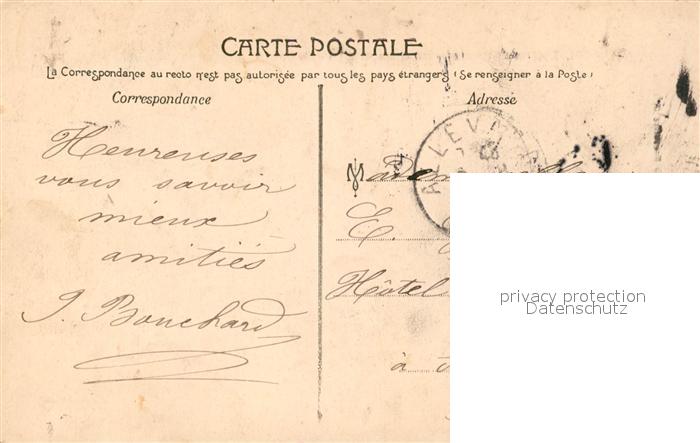 CARTE POSTALE
La Correspondance au recto n'est pas autorisée par tous les pays étrangers (Se renseigner à la Poste)
Correspondance
Adresse
Heureuses
vous savoir
mieux
amitiés
J. Bouchard
ALLEV
E.
Hôtel
à
privacy protection
Datenschutz